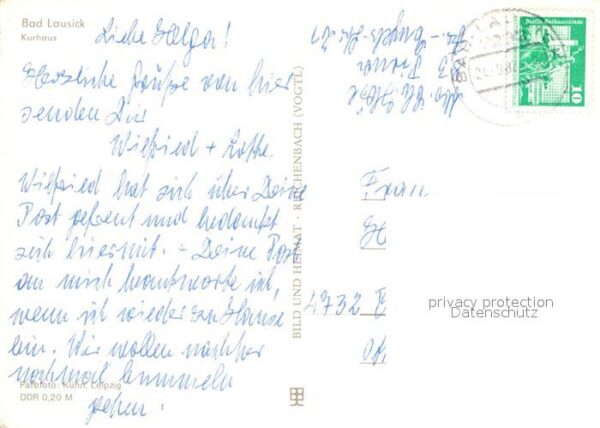 Bad Lausick
Kurhaus
Liebe Helga!
Herzliche Grüße von hier
senden Dir
Wilfried + Lotte.
Wilfried hat sich über Deine
Post gefreut und bedankt
sich hiermit. – Deine Post
an mich beantworte ich,
wenn ich wieder zu Hause
bin. Wir wollen nachher
nochmal bummeln
gehen.
Farbfoto: Kuhn, Leipzig
DDR 0,20 M
BILD UND HEIMAT · REICHENBACH (VOGTL)
Berlin, Rathausstraße
DDR
10
BAD LAUSICK
Frau
H
4732
privacy protection
Datenschutz